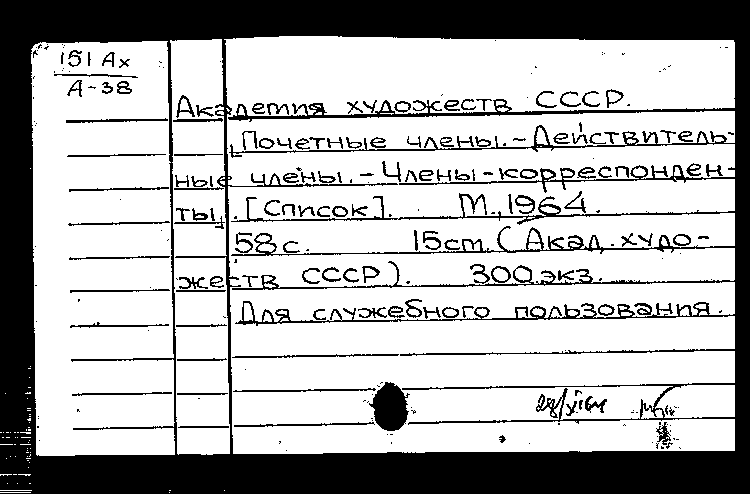 151 Ах
А-38
Академия художеств СССР.
Почетные члены.-Действитель-
ные члены.-Члены-корреспонден-
ты. [Список]. М., 1964.
58 с. 15 см. (Акад. худо-
жеств СССР). 300 экз.
Для служебного пользования.